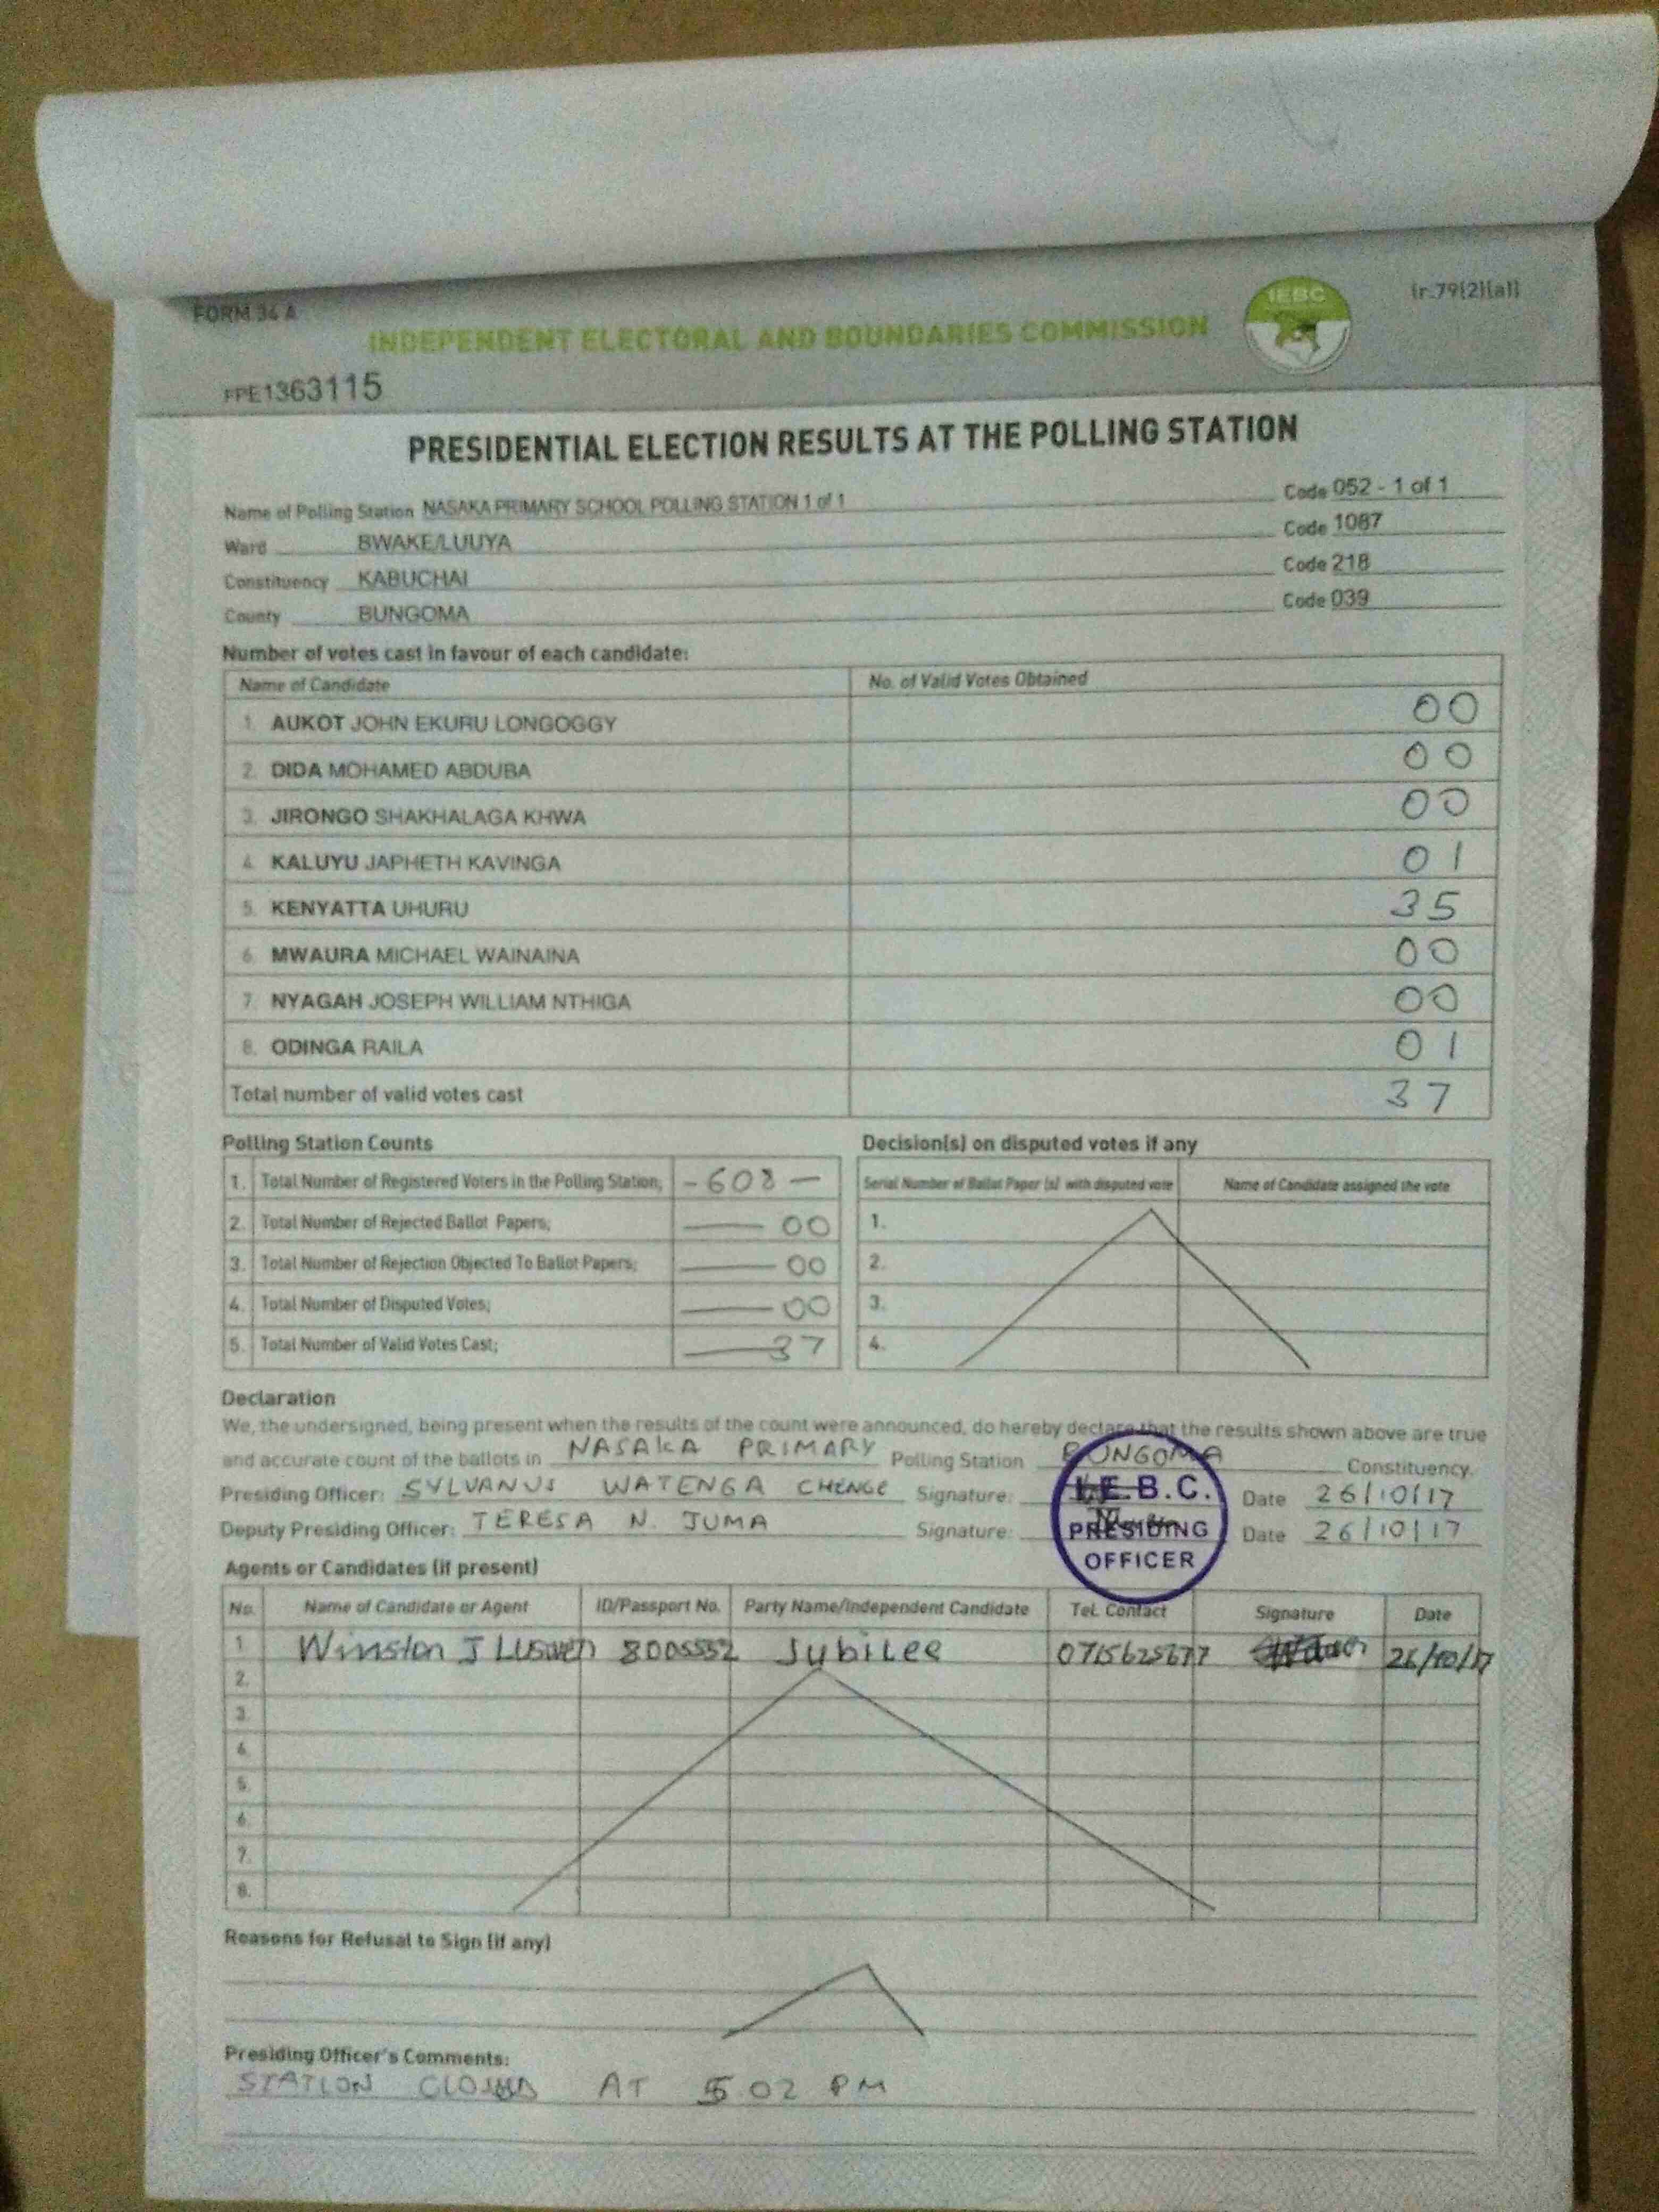 FORM 34 A
(r.79(2)(a))
IEBC
INDEPENDENT ELECTORAL AND BOUNDARIES COMMISSION
FPE1363115
PRESIDENTIAL ELECTION RESULTS AT THE POLLING STATION
Name of Polling Station NASAKA PRIMARY SCHOOL POLLING STATION 1 of 1 Code 052 - 1 of 1
Ward BWAKE/LUUYA Code 1087
Constituency KABUCHAI Code 218
County BUNGOMA Code 039
Number of votes cast in favour of each candidate:
Name of Candidate No. of Valid Votes Obtained
1. AUKOT JOHN EKURU LONGOGGY 00
2. DIDA MOHAMED ABDUBA 00
3. JIRONGO SHAKHALAGA KHWA 00
4. KALUYU JAPHETH KAVINGA 01
5. KENYATTA UHURU 35
6. MWAURA MICHAEL WAINAINA 00
7. NYAGAH JOSEPH WILLIAM NTHIGA 00
8. ODINGA RAILA 01
Total number of valid votes cast 37
Polling Station Counts
1. Total Number of Registered Voters in the Polling Station;
2. Total Number of Rejected Ballot Papers; 00
3. Total Number of Rejection Objected To Ballot Papers; 00
4. Total Number of Disputed Votes; 00
5. Total Number of Valid Votes Cast; 37
Decision(s) on disputed votes if any
Serial Number of Ballot Paper (s) with disputed vote Name of Candidate assigned the vote
1.
2.
3.
4.
Declaration
We, the undersigned, being present when the results of the count were announced, do hereby declare that the results shown above are true
and accurate count of the ballots in NASAKA PRIMARY Polling Station BUNGOMA Constituency.
Presiding Officer: SYLVANUS WATENGA CHENGE Signature: Date 26/10/17
Deputy Presiding Officer: TERESA N. JUMA Signature: Date 26/10/17
I.E.B.C.
PRESIDING
OFFICER
Agents or Candidates (if present)
No. Name of Candidate or Agent ID/Passport No. Party Name/Independent Candidate Tel. Contact Signature Date
1 Winston J Jubilee 26/10/17
2.
3.
4.
5.
6.
7.
8.
Reasons for Refusal to Sign (if any)
Presiding Officer's Comments:
STATION CLOSED AT 5 02 PM